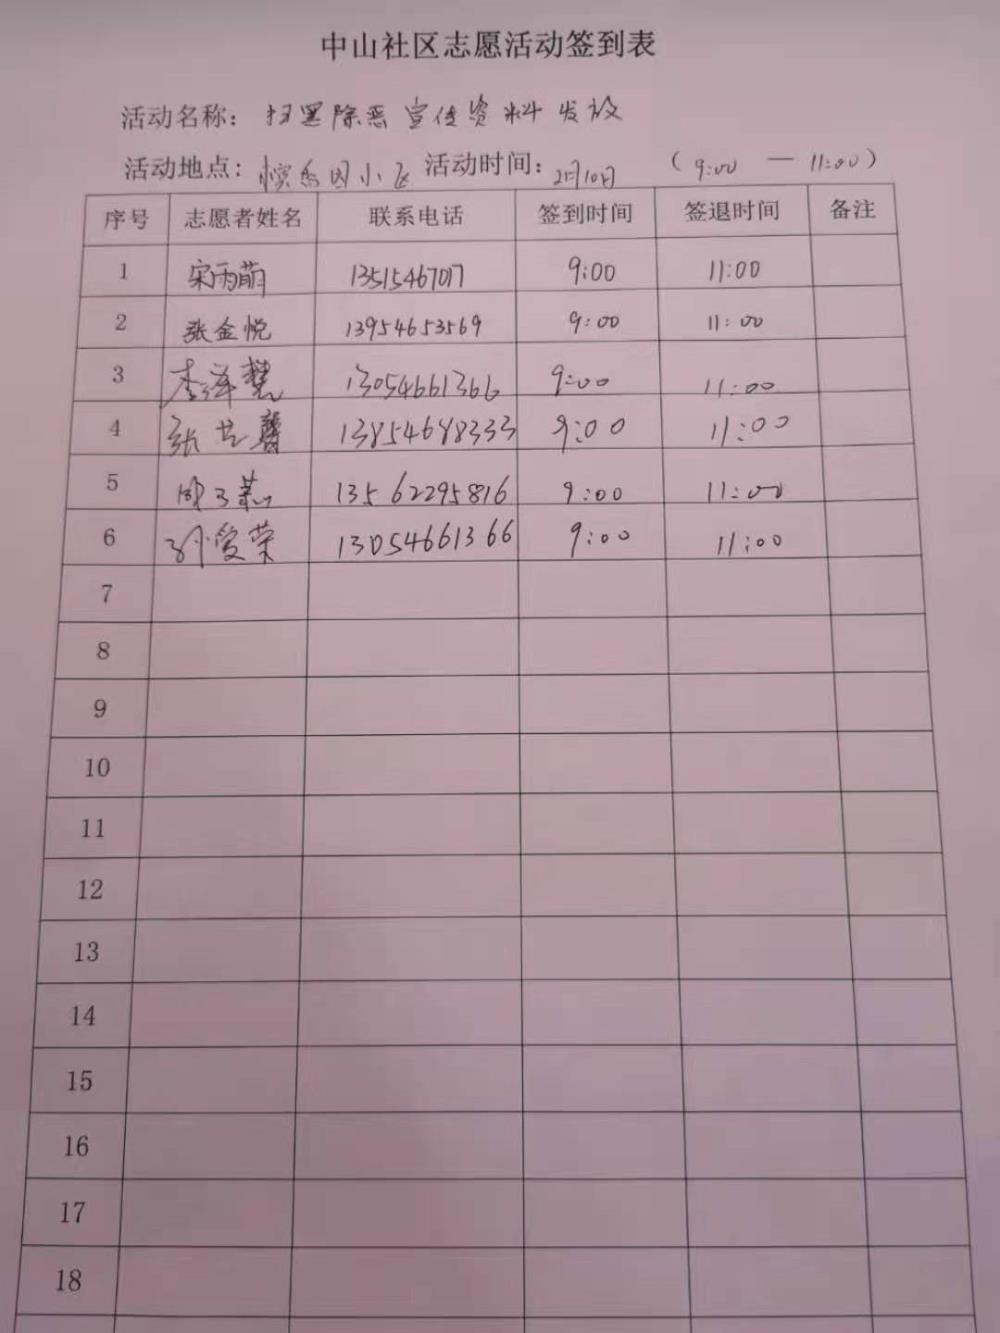 中山社区志愿活动签到表
活动名称: 扫黑除恶宣传资料发放
活动地点: 小 活动时间: 2月10日 (9:00 — 11:00)
序号 志愿者姓名 联系电话 签到时间 签退时间 备注
1 宋雨萌 13515467017 9:00 11:00
2 张金悦 13954653569 9:00 11:00
3 李泽慧 13054661366 9:00 11:00
4 张艺馨 13854688333 9:00 11:00
5 周子 13562295816 9:00 11:00
6 孙爱荣 13054661366 9:00 11:00
7
8
9
10
11
12
13
14
15
16
17
18